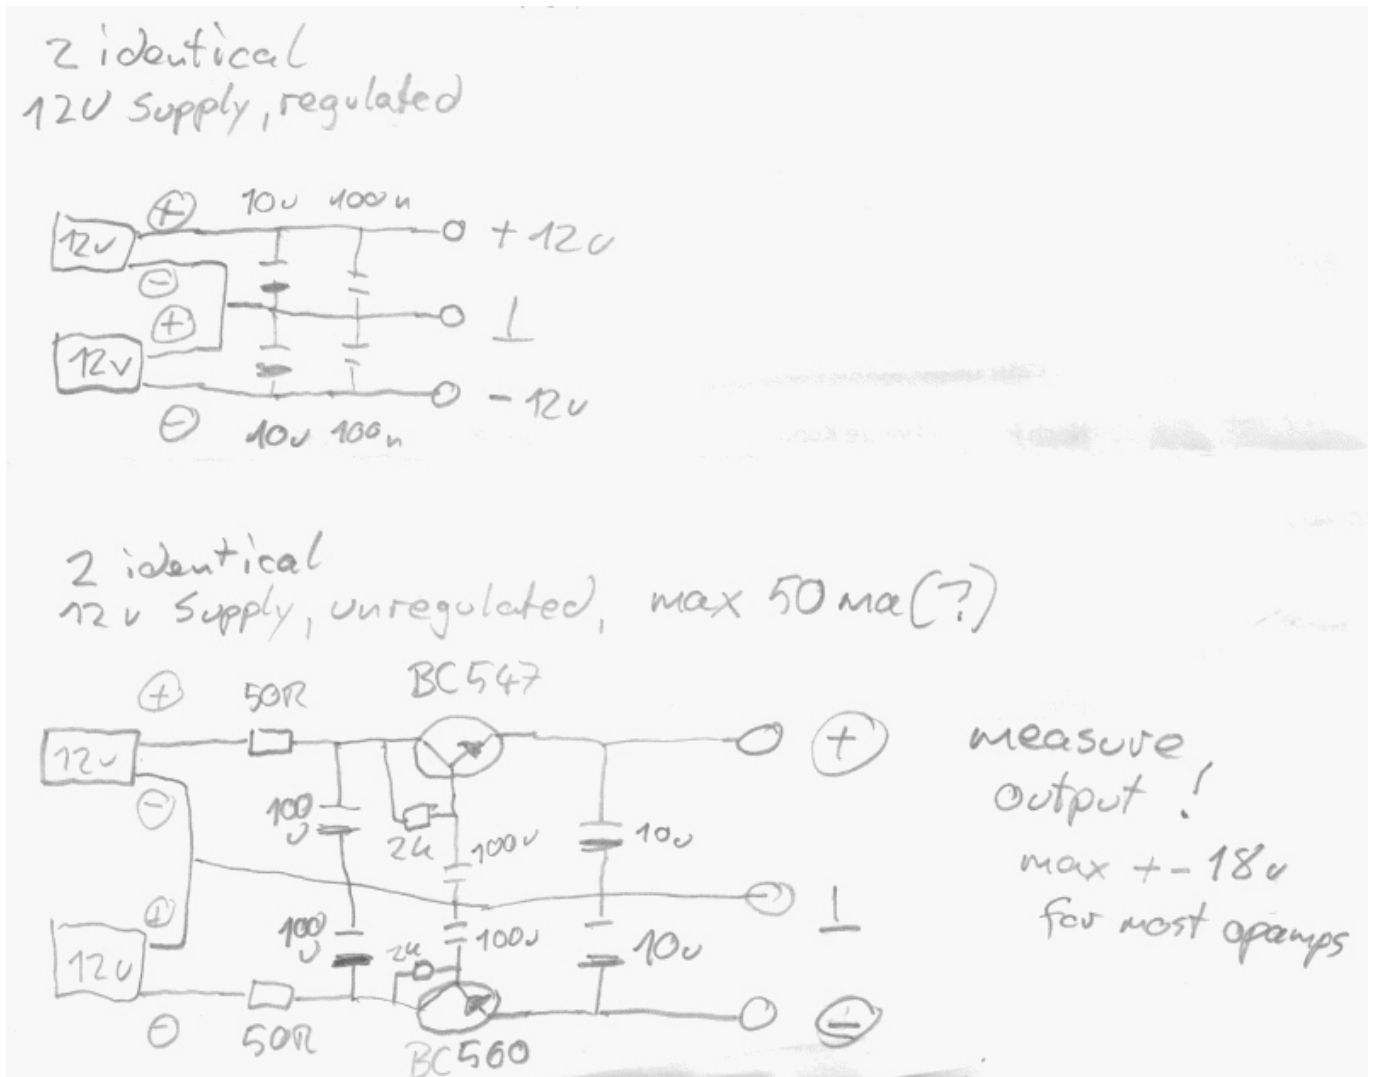 2 identical
12V Supply, regulated
+ 10u 100n
12V + 12V
-
+ ⊥
12V
- 12V
- 10u 100n
2 identical
12V Supply, unregulated, max 50ma(?)
+ 50R BC547
12V + measure
- output!
100u 2k 100u 10u
max +- 18V
+ ⊥ for most opamps
100u 2k 100u 10u
12V
- 50R BC560 -